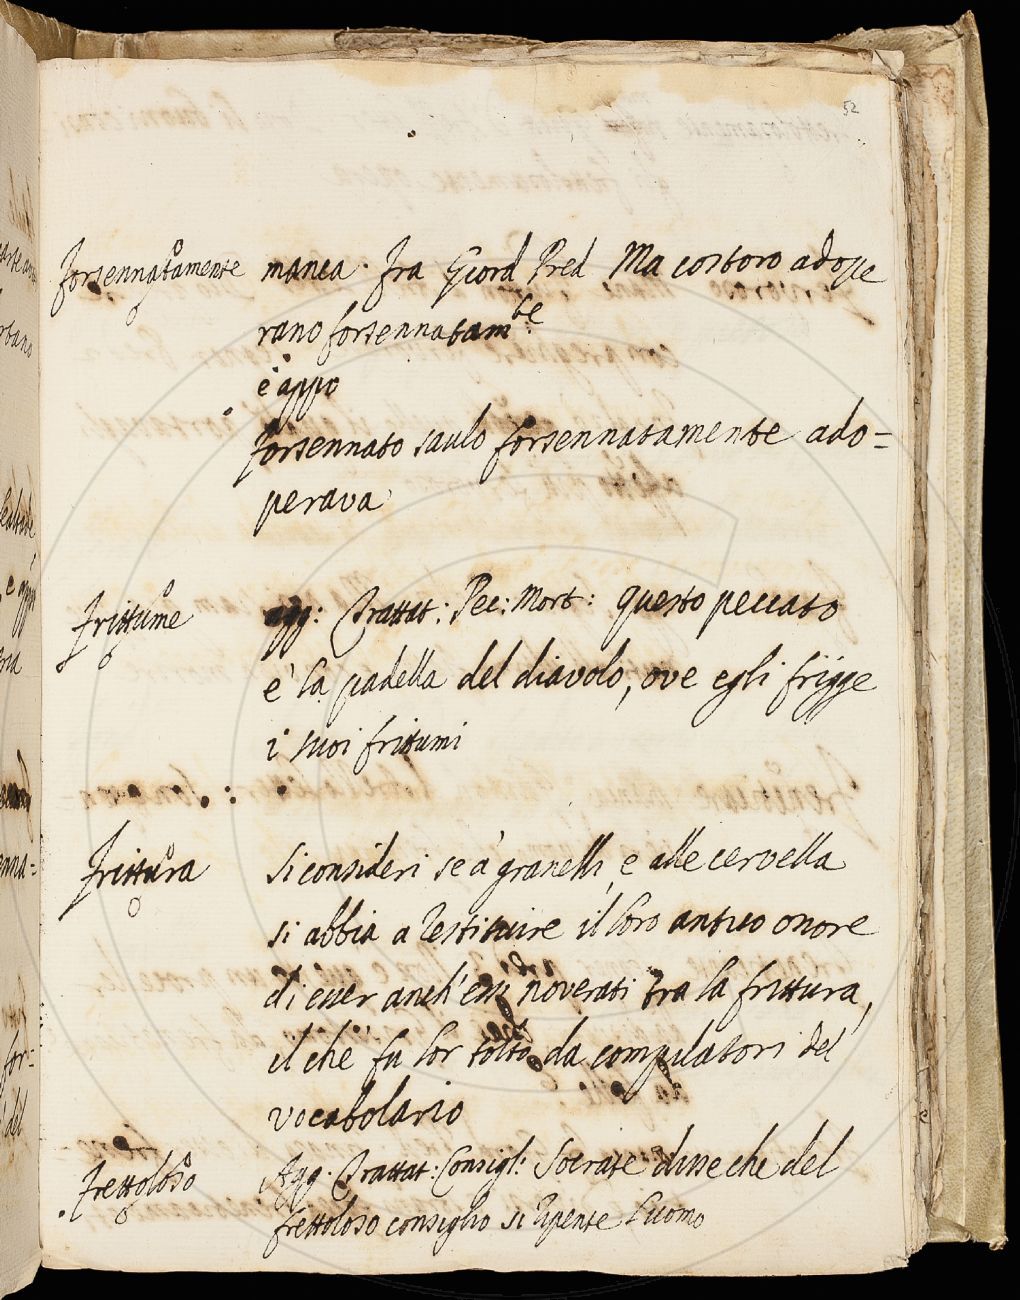 52
forsennatamente manca. fra Giord Pred Ma costoro adope
rano forsennatam.te
e appo
forsennato saulo forsennatamente ado=
perava
frittume agg: Trattat: Pec: Mort: questo peccato
è la padella del diavolo, ove egli frigge
i suoi frittumi
frittura si consideri se à granelli, e alle cervella
si abbia a restituire il loro antico onore
di esser anch'essi noverati tra la frittura,
il chè fu lor tolto da compilatori del
vocabolario
frettoloso Agg. Trattat: Consigl: Socrate disse che del
frettoloso consiglio si ripente l'uomo